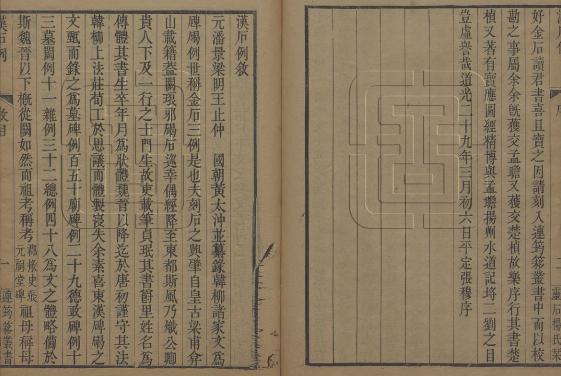 好金石讀君書喜且寶之因請刻入連筠簃叢書中而以校
勘之事屬余余旣獲交孟瞻又獲交楚楨故樂序行其書楚
楨又著有寶應圖經精博與孟瞻揚州水道記埒二劉之目
豈虛譽哉道光二十九年三月初六日平定張穆序
靈石楊氏栞
漢石例敘
元潘景梁明王止仲 國朝黃太沖並纂錄韓柳諸家文爲
碑碣例世稱金石三例是也夫刻石之興肇自皇古梁甫弇
山載籍蓋闕琅邪碭石巡幸偶經降至東都斯風乃熾公卿
貴人下及一行之士門生故吏載筆貞珉其書爵里姓名爲
傳體其書生卒年月爲狀體魏晉以降迄於唐初謹守其法
韓柳上法莊荀工於思議而體製寖失余素喜東漢碑碣之
文輒而錄之爲墓碑例百五十廟碑例二十九德政碑例十
三墓闕例十一雜例三十二總例四十八爲文之體略備於
斯魏晉以下槪從闕如然而祖考稱考
元嗣堂碑
祖母稱母
漢石例
敘目
一
連筠簃叢書